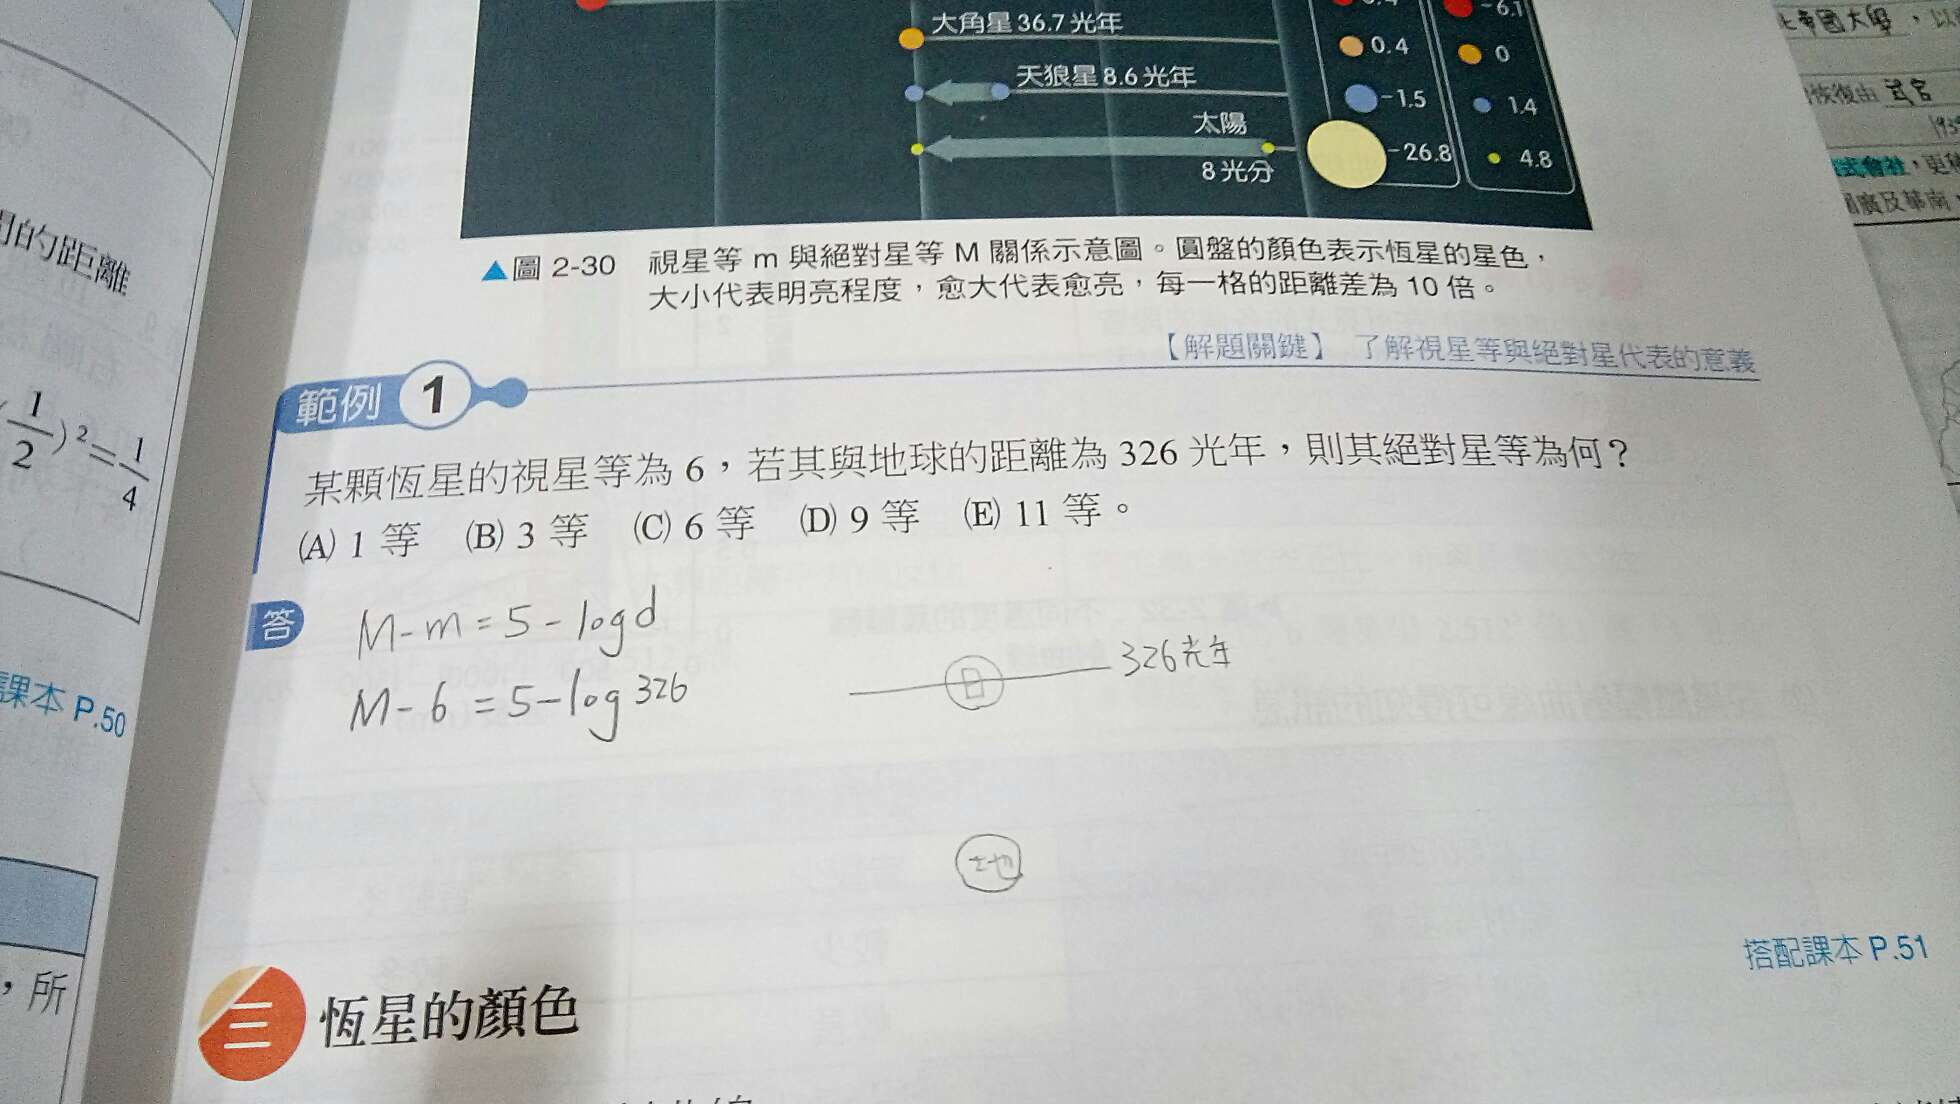 -6.1
大角星 36.7 光年
0.4
0
天狼星 8.6 光年
-1.5
1.4
太陽
8 光分
-26.8
4.8
▲圖 2-30 視星等 m 與絕對星等 M 關係示意圖。圓盤的顏色表示恆星的星色，
大小代表明亮程度，愈大代表愈亮，每一格的距離差為 10 倍。
【解題關鍵】 了解視星等與絕對星代表的意義
範例 1
某顆恆星的視星等為 6，若其與地球的距離為 326 光年，則其絕對星等為何？
(A) 1 等 (B) 3 等 (C) 6 等 (D) 9 等 (E) 11 等。
答
M-m=5-log d
M-6=5-log 326
日
326光年
地
搭配課本 P.51
三 恆星的顏色
的距離
1/2)²=1/4
課本 P.50
，所
帝國大學，以
恢復由 武官
式會社，更
廣及華南，